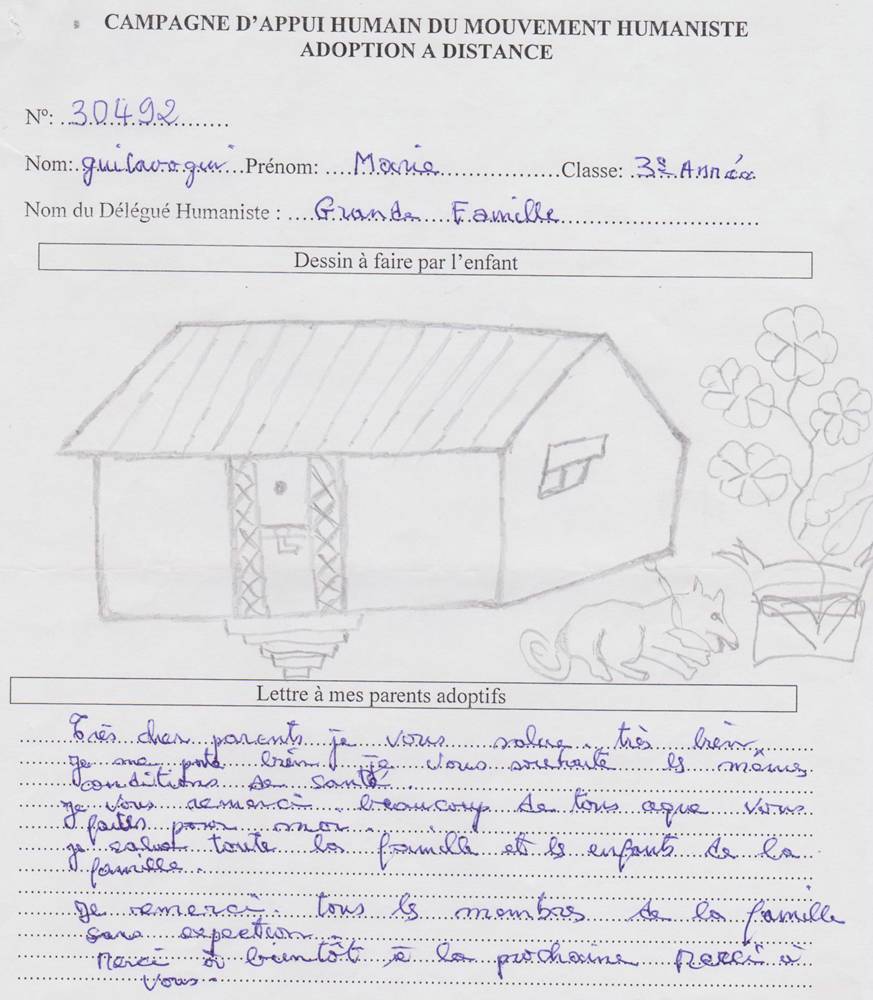 CAMPAGNE D'APPUI HUMAIN DU MOUVEMENT HUMANISTE
ADOPTION A DISTANCE
N°: 30492
Nom: guilavogui Prénom: Marie Classe: 3e Année
Nom du Délégué Humaniste : Grande Famille
Dessin à faire par l'enfant
Lettre à mes parents adoptifs
Très cher parents je vous salue très bien
Je me porte bien je vous souhaite les mêmes
conditions de santé.
Je vous remerci beaucoup de tous aque vous
faites pour moi.
je salue toute la famille et les enfants de la
famille.
Je remerci tous les membres de la famille
sans expection.
Merci à bientôt à la prochaine Merci à
vous.